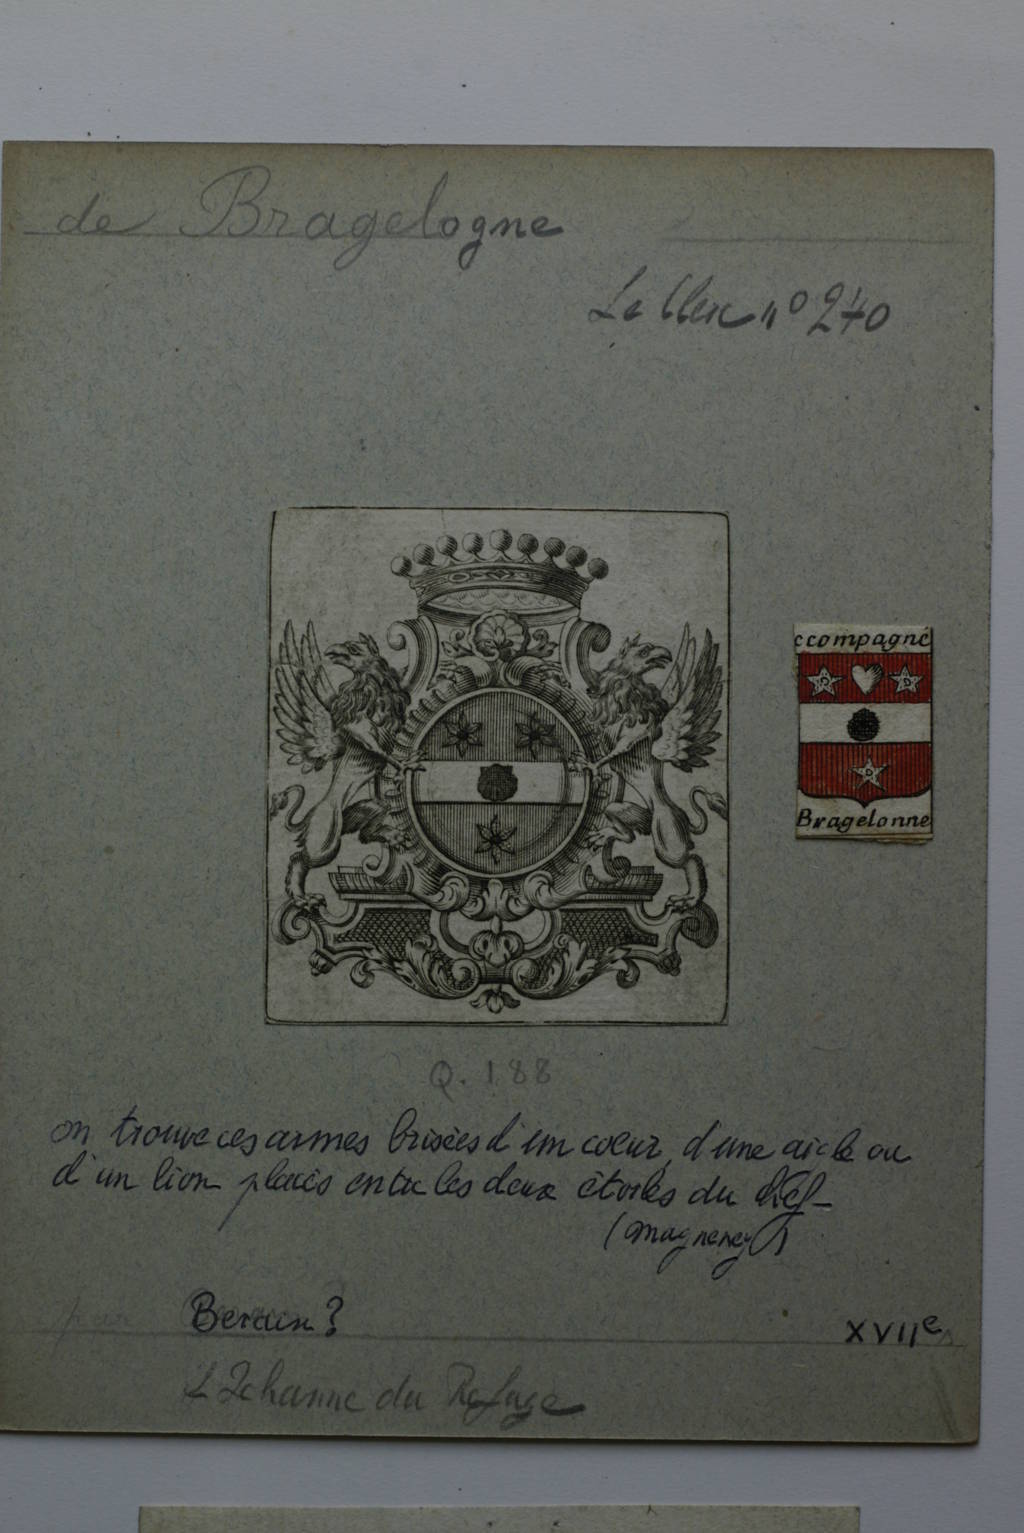 de Bragelogne
n° 240
ccompagné
Bragelonne
Q. 188
on trouve ces armes brisées d'un coeur, d'une aicle ou
d'un lion placés entre les deux étoiles du chef-
(Magneney)
par Berain?
XVIIe s
Jehanne du Refuge